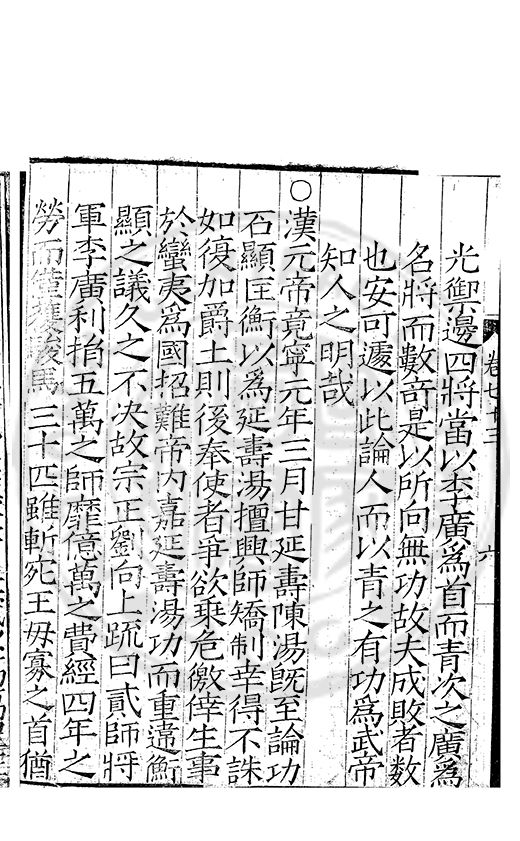 光禦邊四將當以李廣爲首而青次之廣爲
名將而數奇是以所向無功故夫成敗者數
也安可遽以此論人而以青之有功爲武帝
知人之明哉
○漢元帝竟寧元年三月甘延壽陳湯既至論功
石顯匡衡以爲延壽湯擅興師矯制幸得不誅
如復加爵土則後奉使者爭欲乘危徼倖生事
於蠻夷爲國招難帝内嘉延壽湯功而重違衡
顯之議久之不決故宗正劉向上疏曰貳師將
軍李廣利捐五萬之師靡億萬之費經四年之
勞而僅獲駿馬三十匹雖斬宛王毋寡之首猶
卷七十三
六